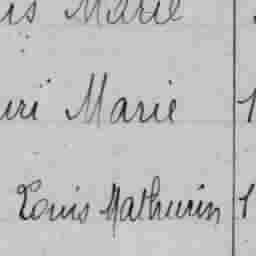 is Marie
uri Marie 1
Louis Mathurin 1